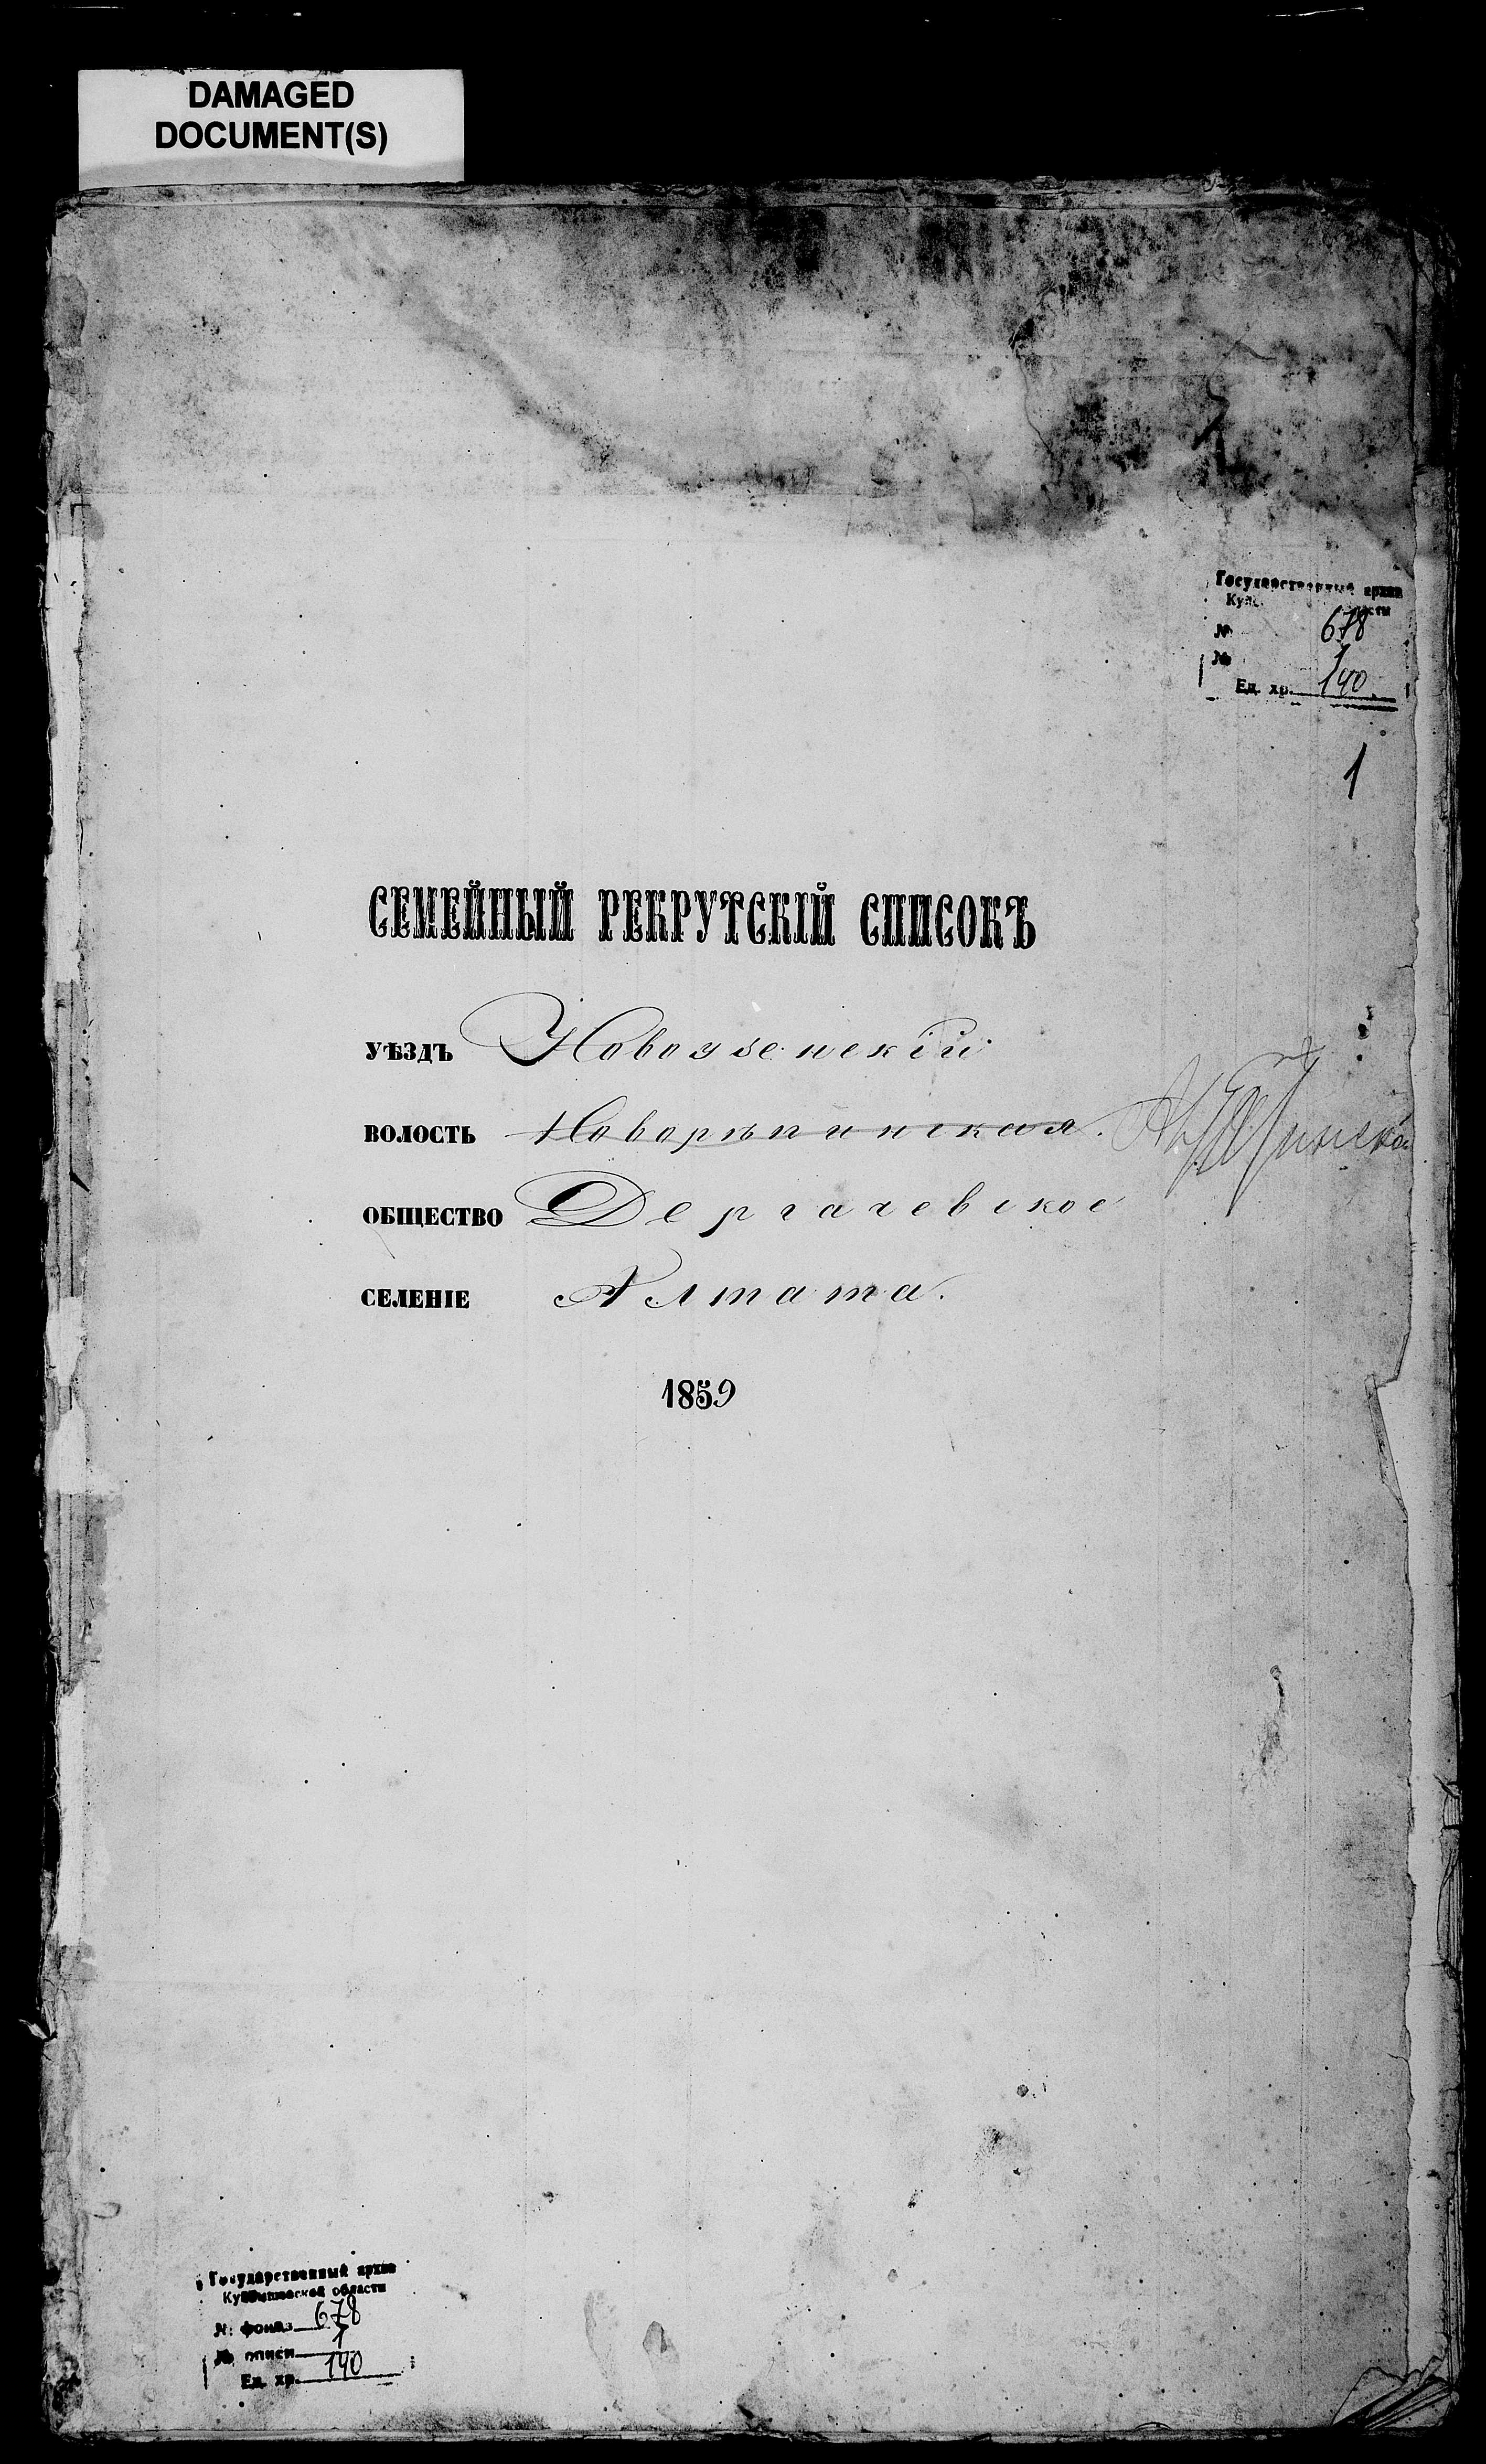 DAMAGED
DOCUMENT(S)
Государственный архив
Куй
№ 678
№ 1
Ед. хр. 140
1
СЕМЕЙНЫЙ РЕКРУТСКІЙ СПИСОКЪ
УѢЗДЪ Новоузенскій
ВОЛОСТЬ Новорѣпинская.
ОБЩЕСТВО Дергачевское
СЕЛЕНІЕ Алтата.
1859
Государственный архив
Куйбышевской области
№ фонда 678
№ описи 1
Ед. хр. 140